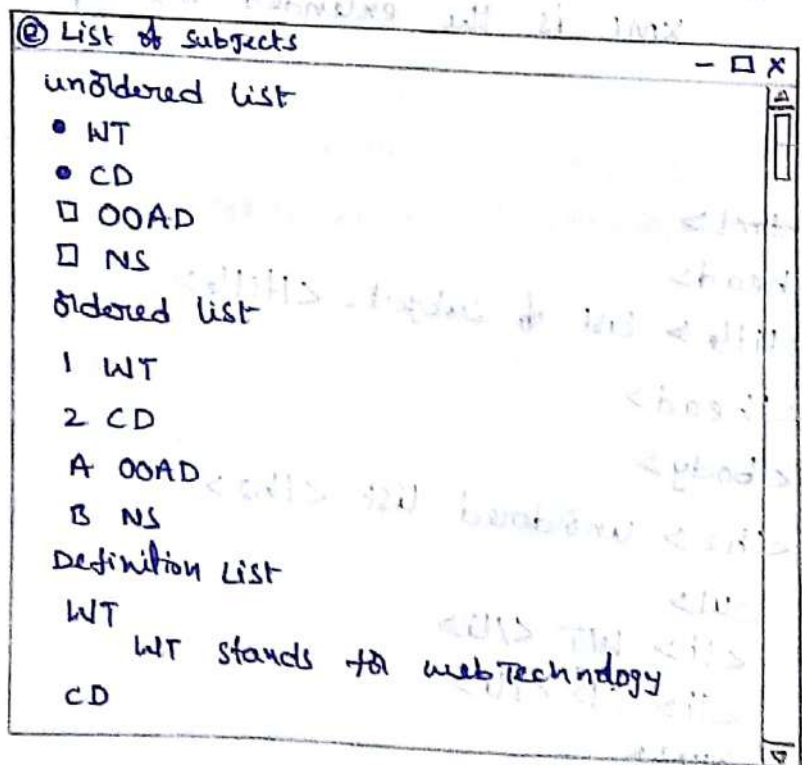 List of subjects
unordered list
• WT
• CD
□ OOAD
□ NS
ordered list
1 WT
2 CD
A OOAD
B NS
Definition List
WT
WT stands for web Technology
CD